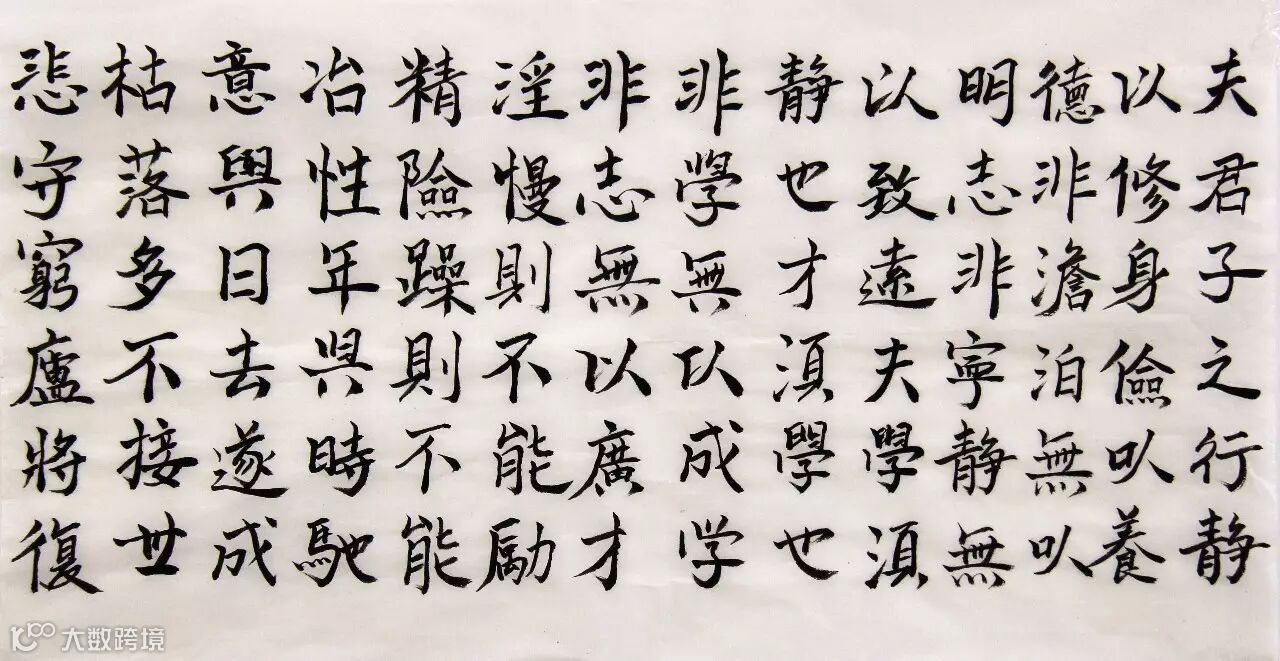 夫君子之行静
以修身儉以養
德非澹泊無以
明志非寧静無
以致遠夫學須
静也才須學也
非學無以成学
非志無以廣才
淫慢則不能勵
精險躁則不能
冶性年與時馳
意與日去遂成
枯落多不接世
悲守窮廬將復
大数跨境